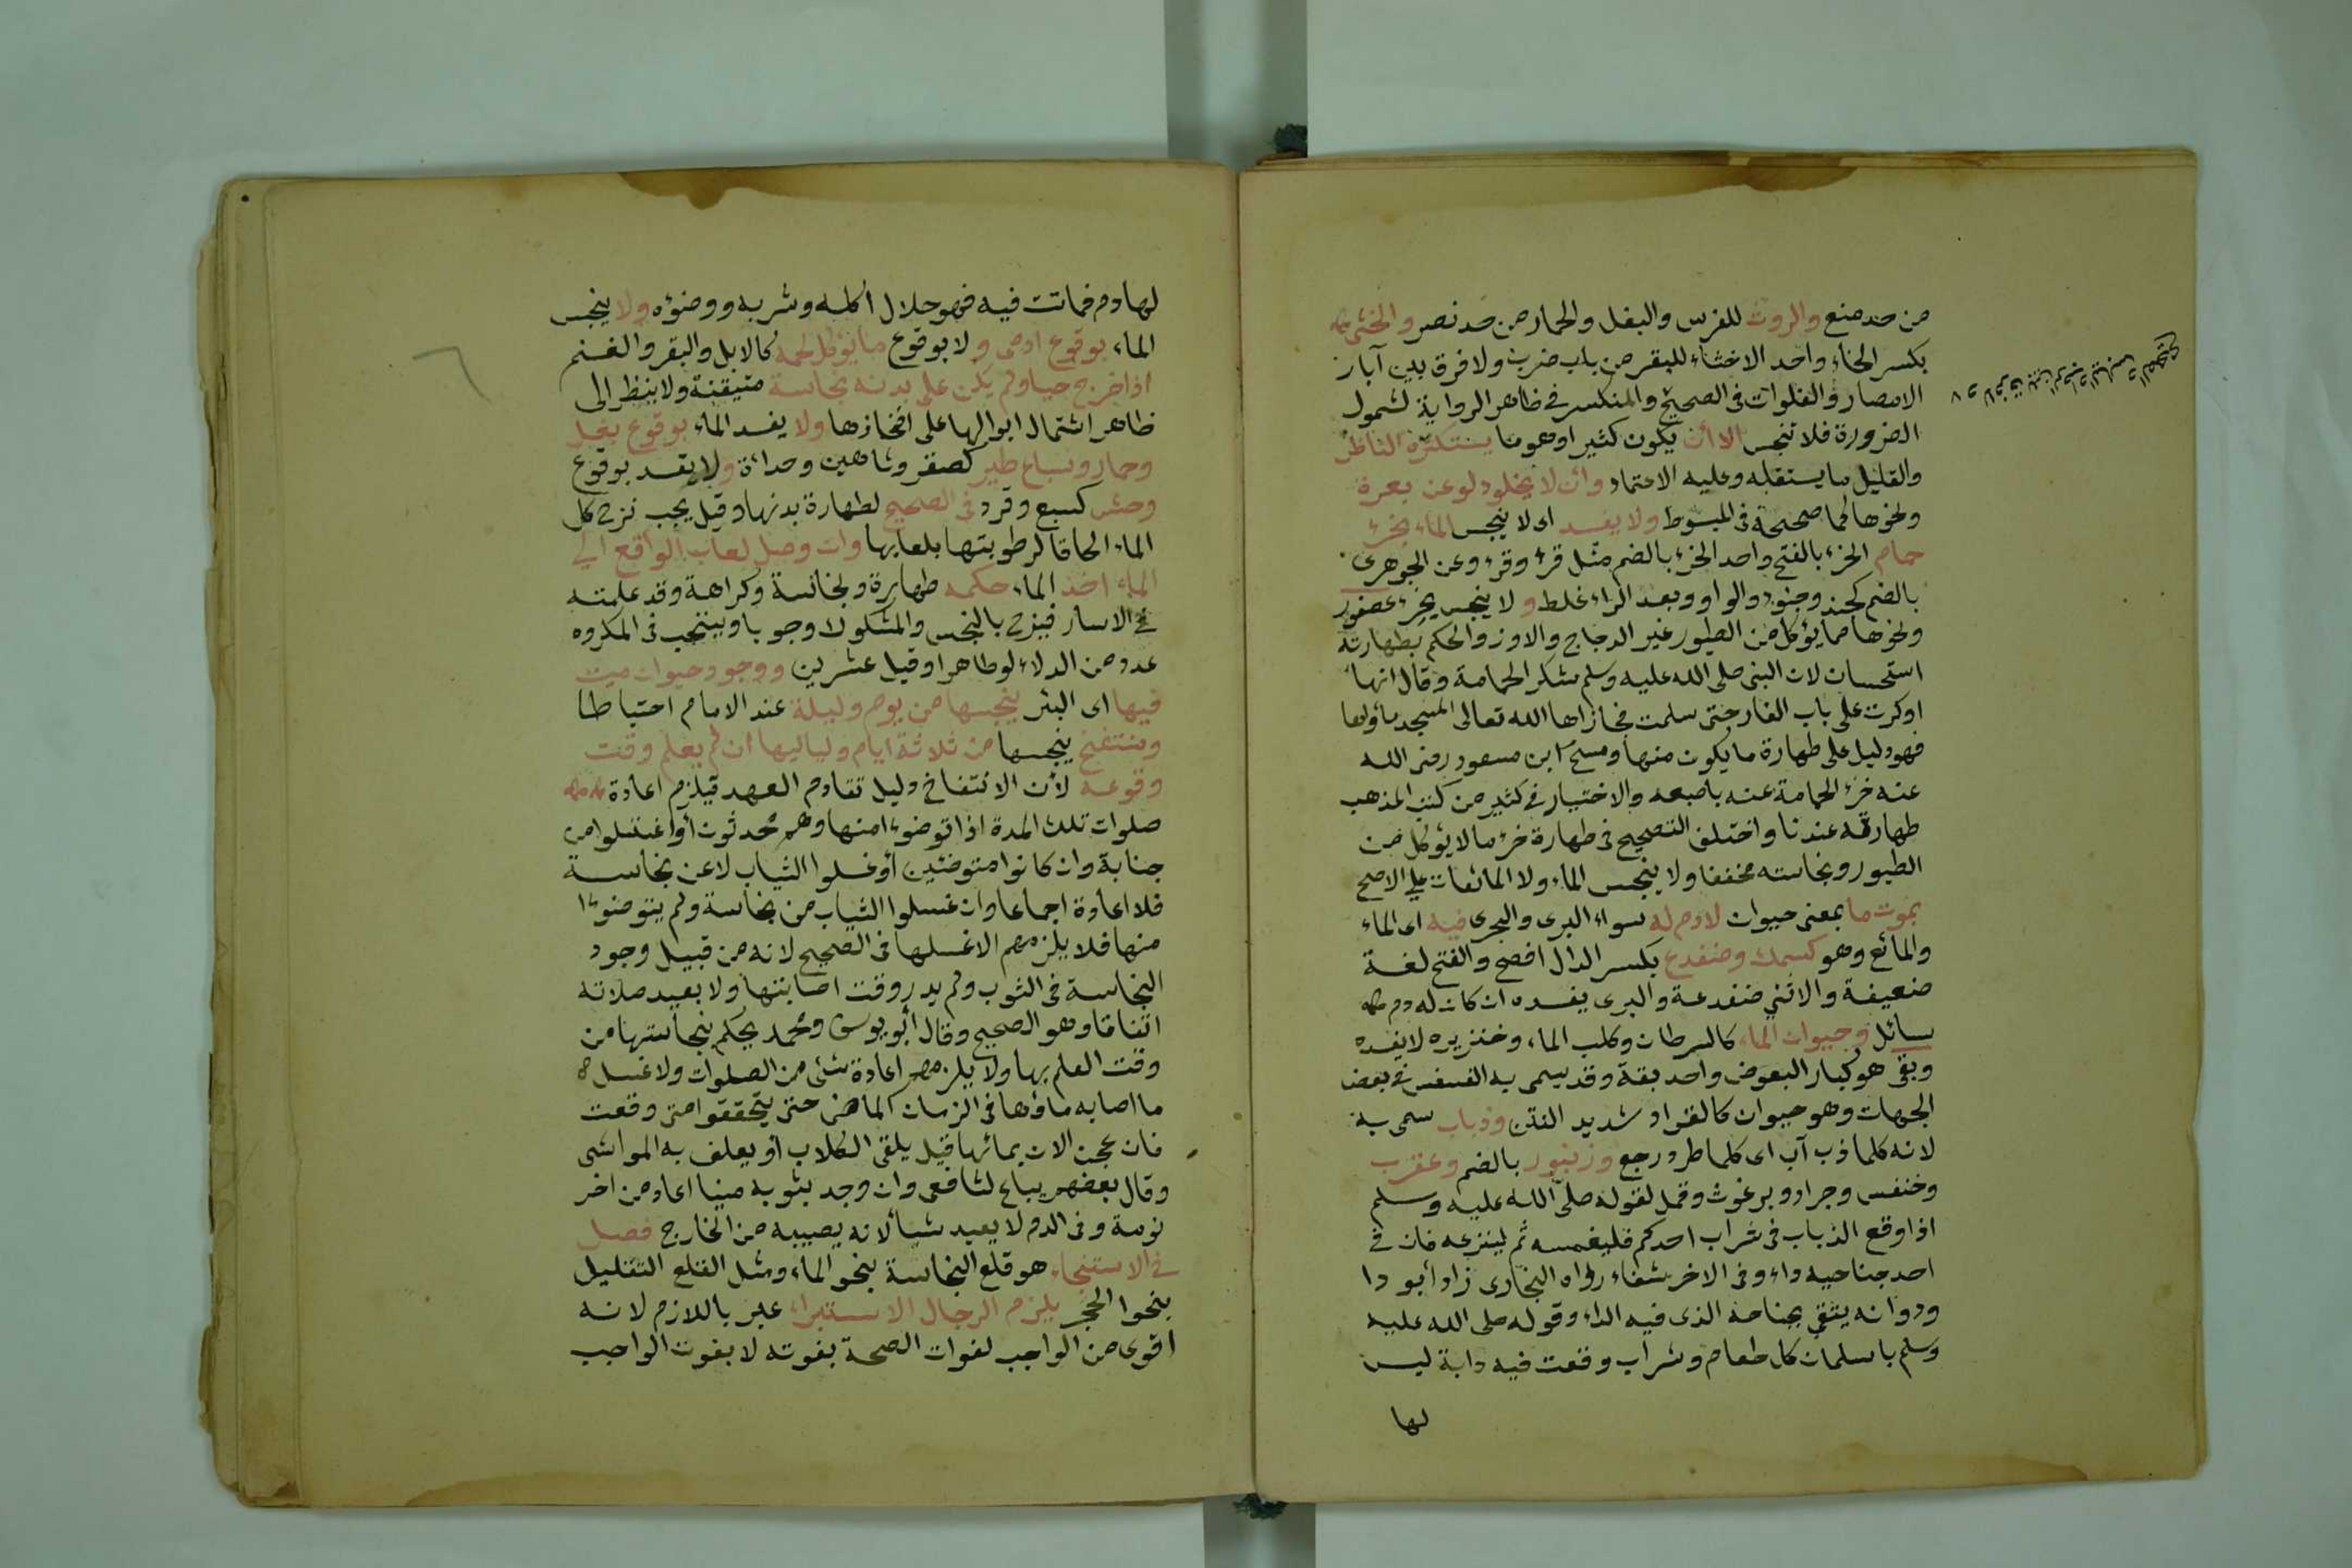 من حد منع والروث للفرس والبغل والحمار من حد نصر والخثى
بكسر الخاء واحد الاخثاء للبقر من باب ضرب ولا فرق بين آبار
الامصار والفلوات في الصحيح والمنكسر في ظاهر الرواية لشمول
الضرورة فلا تنجس الا أن يكون كثيرا وهو ما يستكثره الناظر
والقليل ما يستقله وعليه الاعتماد وان لا يخلو دلو عن بعرة
ونحوها كما صححه في المبسوط ولا يفسد اى لا ينجس الماء بخرء
حمام الخرء بالفتح واحد الخرء بالضم مثل قرء وقرء وعن الجوهرى
بالضم كجند وجنود والواو وبعد الراء غلط و لا ينجس بخرء عصفور
ونحوها مما يؤكل من الطيور غير الدجاج والاوز والحكم بطهارته
استحسان لان النبى صلى الله عليه وسلم شكر الحمامة وقال انها
اوكرت على باب الغار حتى سلمت فجازاها الله تعالى المسجد مأواها
فهو دليل على طهارة ما يكون منها ومسح ابن مسعود رضى الله
عنه خرء الحمامة عنه باصبعه والاختيار في كثير من كتب المذهب
طهارته عندنا واختلف التصحيح في طهارة خرء ما لا يؤكل من
الطيور ونجاسته مخففا ولا ينجس الماء ولا المائعات على الاصح
بموت ما بمعنى حيوان لا دم له سواء البرى والبحرى فيه اى الماء
والمائع وهو كسمك وضفدع بكسر الدال افصح والفتح لغة
ضعيفة والانثى ضفدعة والبرى يفسده ان كان له دم
سائل وحيوان الماء كالسرطان وكلب الماء وخنزيره لا يفسده
وبق هو كبار البعوض واحد بقة وقد يسمى به الفسفس في بعض
الجهات وهو حيوان كالقراد شديد النتن وذباب سمى به
لانه كلما ذب آب اى كلما طرد رجع وزنبور بالضم وعقرب
وخنفس وجراد وبرغوث وقمل لقوله صلى الله عليه وسلم
اذا وقع الذباب في شراب احدكم فليغمسه ثم لينزعه فان في
احد جناحيه داء وفى الاخر شفاء رواه البخارى زاد أبو دا
ود وانه يتقي بجناحه الذى فيه الداء وقوله صلى الله عليه
وسلم يا سلمان كل طعام وشراب وقعت فيه دابة ليس
لها
لها دم فماتت فيه فهو حلال اكله وشربه ووضوءه ولا ينجس
الماء بوقوع ادمى و لا بوقوع ما يؤكل لحمه كالابل والبقر والغنم
اذا خرج حيا ولم يكن على بدنه نجاسة متيقنة ولا ينظر الى
ظاهر اشتمال ابوالها على افخاذها ولا يفسد الماء بوقوع بغل
وحمار وسباع طير كصقر وشاهين وحدأة ولا يفسد بوقوع
وحش كسبع وقرد في الصحيح لطهارة بدنها وقيل يجب نزح كل
الماء الحاقا لرطوبتها بلعابها وان وصل لعاب الواقع الى
الماء اخذ الماء حكمه طهارة ونجاسة وكراهة وقد علمته
في الاسار فينزح بالنجس والمشكوك وجوبا ويستحب في المكروه
عدد من الدلاء لو طاهرا وقيل عشرين ووجود حيوان ميت
فيها اى البئر ينجسها من يوم وليلة عند الامام احتياطا
ومنتفخ ينجسها من ثلاثة ايام ولياليها ان لم يعلم وقت
وقوعه لأن الانتفاخ دليل تقادم العهد فيلزم اعادة
صلوات تلك المدة اذا توضوءا منها وهم محدثون أو اغتسلوا من
جنابة وان كانوا متوضئين أو غسلوا الثياب لا عن نجاسة
فلا اعادة اجماعا وان غسلوا الثياب من نجاسة ولم يتوضوءا
منها فلا يلزمهم الا غسلها في الصحيح لانه من قبيل وجود
النجاسة في الثوب ولم يدر وقت اصابتها ولا يعيد صلاته
اتفاقا وهو الصحيح وقال أبو يوسف ومحمد يحكم بنجاستها من
وقت العلم بها ولا يلزمهم اعادة شئ من الصلوات ولا غسل
ما اصابه ماؤها في الزمان الماضى حتى يتحققوا متى وقعت
فان عجن الان بمائها قيل يلقى للكلاب أو يعلف به المواشى
وقال بعضهم يباع لشافعى وان وجد بثوبه منيا اعاد من اخر
نومة وفى الدم لا يعيد شيأ لانه يصيبه من الخارج فصل
في الاستنجاء هو قلع النجاسة بنحو الماء ومثل القلع التقليل
بنحو الحجر يلزم الرجال الاستبراء عبر باللازم لانه
اقوى من الواجب لفوات الصحة بفوته لا بفوت الواجب